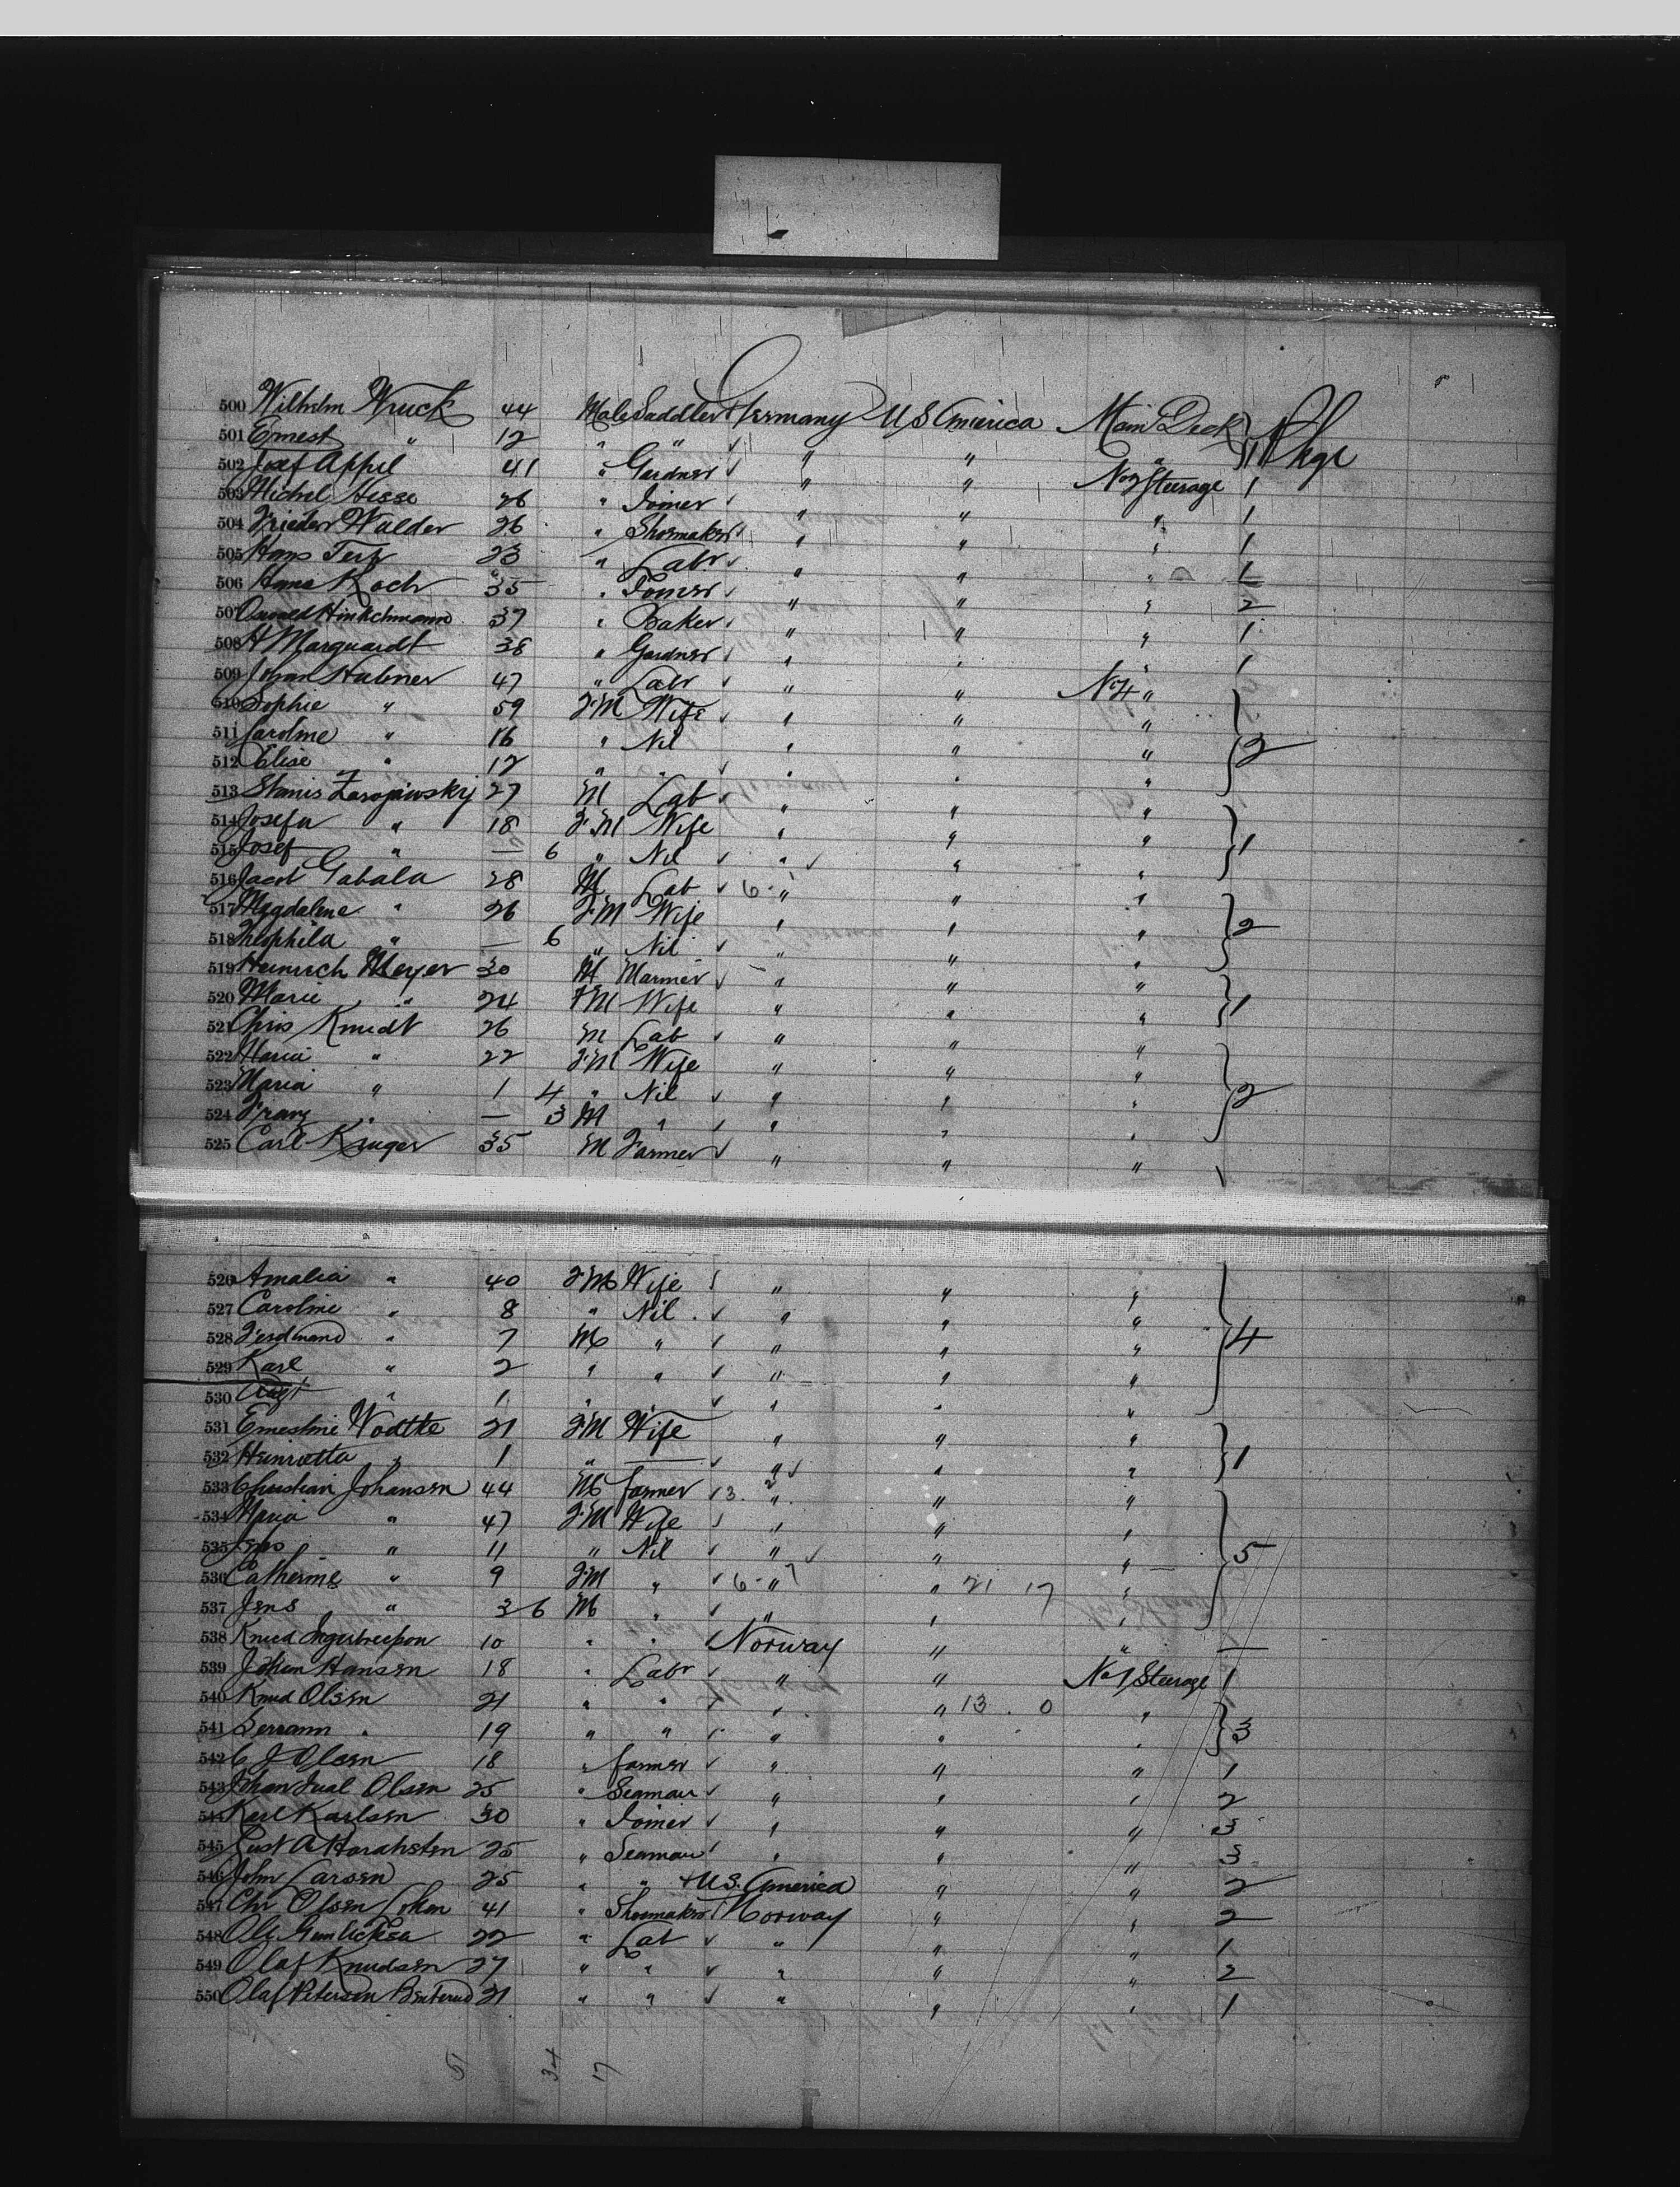 500 Wilhelm Wruck 44 Male Saddler Germany U S America Main Deck 1 Pkge
501 Ernest " 12 " " " " "
502 Josef Appel 41 " Gardner " " No 2 Steerage 1
503 Michel Hesse 26 " Joiner " " " 1
504 Frieder Walder 26 " Shoemaker " " " 1
505 Hans 23 " Labr " " " 1
506 Hans Koch 35 " Joiner " " " 2
507 37 " Baker " " " 1
508 H Marquardt 38 " Gardner " " " 1
509 Johan Hubner 47 " Labr " " No 4 "
510 Sophie " 59 F.M Wife " " "
511 Caroline " 16 " Nil " " " 2
512 Elise " 12 " " " " "
513 Stanis 27 M Lab " " "
514 Josefa " 18 F.M Wife " " "
515 Josef " — 6 " Nil " " " 1
516 Jacob Gabala 28 M Lab 6 " " "
517 Magdalene " 26 F.M Wife " " " 2
518 Theophila " — 6 " Nil " " "
519 Heinrich Meyer 30 M " " "
520 Marie " 24 F.M Wife " " " 1
521 Chris Knudt 26 M Lab " " "
522 Maria " 22 F.M Wife " " "
523 Maria " 1 4 " Nil " " " 2
524 Franz " — 3 M " " " "
525 Carl Kruger 35 M Farmer " " "
526 Amalia " 40 F.M Wife " " "
527 Caroline " 8 " Nil " " "
528 Ferdinand " 7 M " " " " 4
529 Karl " 2 " " " " "
530 Augt " 1 " " " " "
531 Ernestine Wodtke 21 F.M Wife " " "
532 Heinrietta " 1 " — " " " 1
533 Christian Johansen 44 M farmer 3. 2 " " "
534 Maria " 47 F.M Wife " " "
535 " 11 " Nil " " " 5
536 Catherine " 9 F.M " 6 - " 7 " 21 17 "
537 Jens " 3 6 M " " " "
538 Knud 10 " " Norway " " —
539 Johan Hansen 18 " Labr " " No 1 Steerage 1
540 Knud Olsen 21 " " " " 13 . 0 "
541 " 19 " " " " " 3
542 C J Olsen 18 " farmer " " " 1
543 Johan Olsen 25 " Seaman " " " 2
544 Karl Karlsen 30 " Joiner " " " 3
545 Gust A 25 " Seaman " " " 3
546 John Larsen 25 " " + U.S. America " " 2
547 Chr Olsen 41 " Shoemaker Norway " " 2
548 Ole 22 " Lab " " " 1
549 Olaf Knudsen 27 " " " " " 2
550 Olaf Peterson 21 " " " " " 1
51 34 17